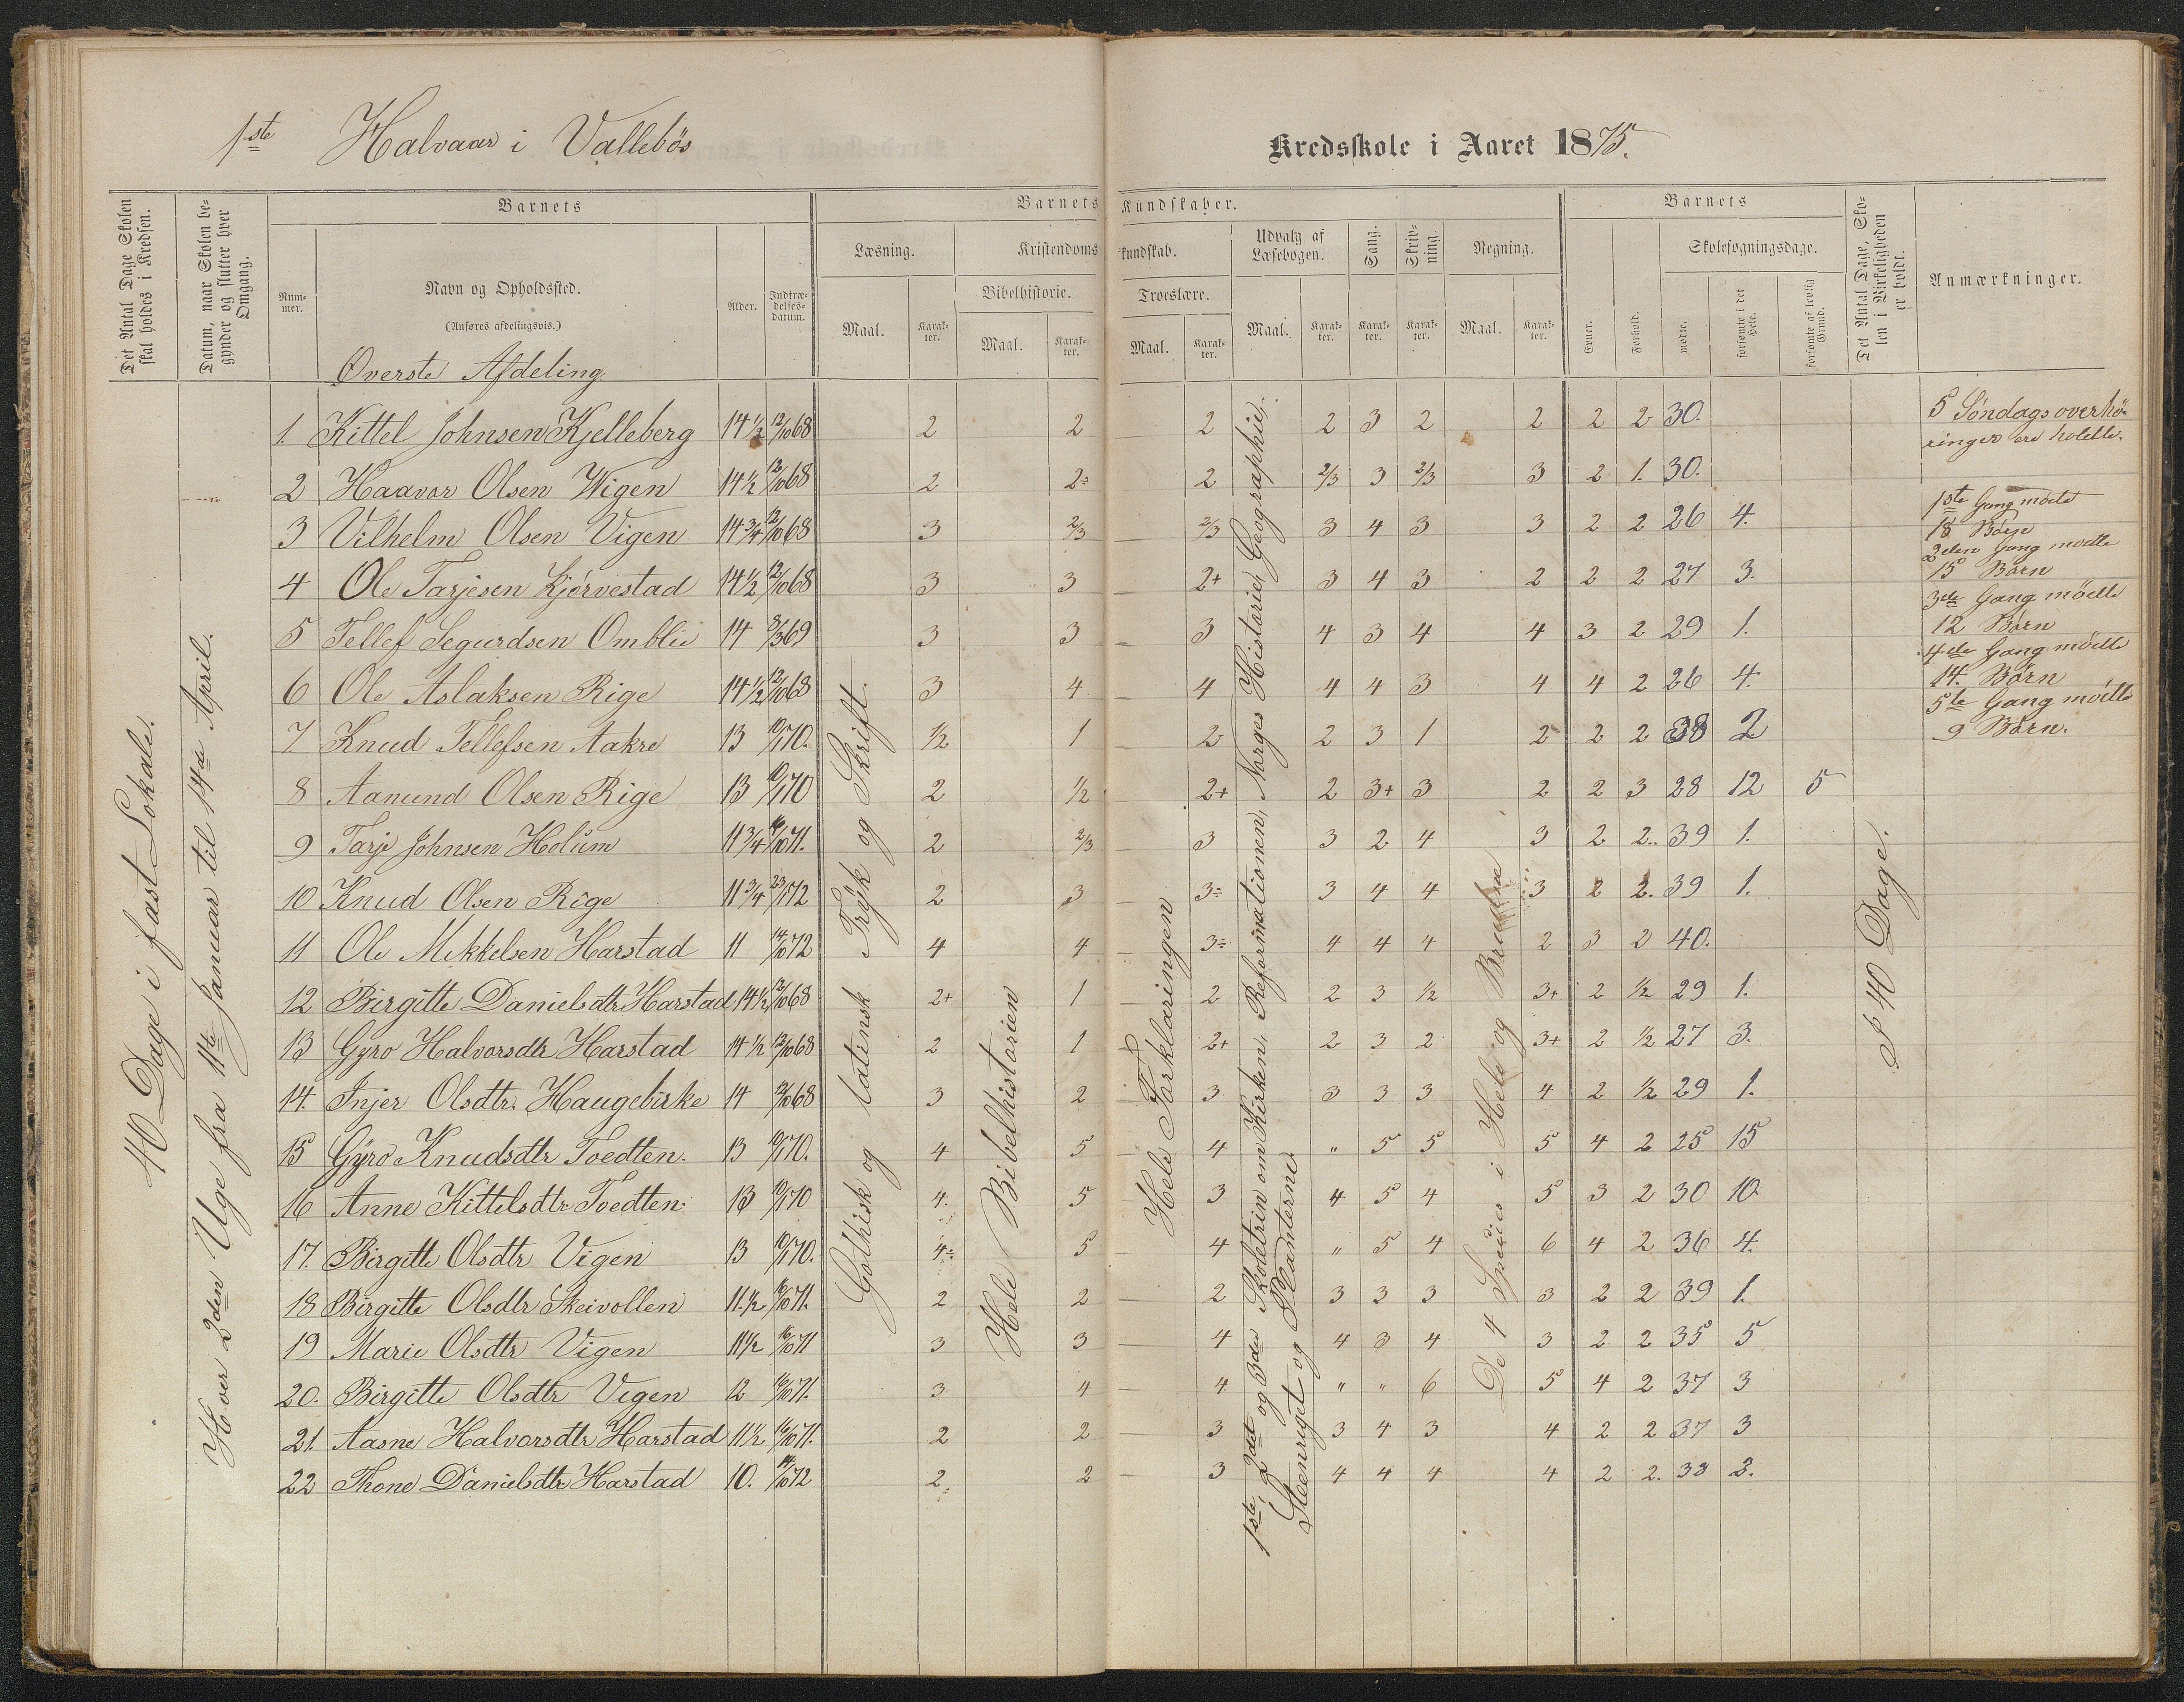 1ste Halvaar i Vallebös
Kredsskole i Aaret 1875.
Det Antal Dage Skolen skal holdes i Kredsen.
Datum, naar Skolen begynder og slutter hver Omgang.
Barnets
Num-mer.
Navn og Opholdssted.
(Anføres afdelingsvis.)
Alder.
Indtræ-delses-datum.
Barnets Kundskaber.
Læsning.
Maal.
Karak-ter.
Kristendomskundskab.
Bibelhistorie.
Maal.
Karak-ter.
Troeslære.
Maal.
Karak-ter.
Udvalg af Læsebogen.
Maal.
Karak-ter.
Sang.
Karak-ter.
Skriv-ning.
Karak-ter.
Regning.
Maal.
Karak-ter.
Barnets
Evner.
Forhold.
Skolesøgningsdage.
mødte.
forsømte i det Hele.
forsømte af lovlig Grund.
Det Antal Dage, Skolen i Virkeligheden er holdt.
Anmærkninger.
Överste Afdeling
1. Kittel Johnsen Kjelleberg 14 1/2 12/10 68 2 2 2 2 3 2 2 2 2 30.
2 Haavor Olsen Wigen 14 1/2 12/10 68 2 2÷ 2 2/3 3 2/3 3 2 1. 30.
3 Vilhelm Olsen Vigen 14 3/4 12/10 68 3 2/3 2/3 3 4 3 3 2 2 26 4.
4 Ole Tarjesen Kjörvestad 14 1/2 12/10 68 3 3 2+ 3 4 3 2 2 2 27 3.
5 Tellef Segurdsen Omblie 14 3/3 69 3 3 3 4 3 4 4 3 2 29 1.
6 Ole Aslaksen Rige 14 1/2 12/10 68 3 4 4 4 4 3 4 4 2 26 4.
7 Knud Tellefsen Aakre 13 10/1 70. 1/2 1 2 2 3 1 2 2 2 38 2
8 Aanund Olsen Rige 13 10/1 70 2 1/2 2+ 2 3+ 3 2 2 3 28 12 5
9 Tarje Johnsen Holum 11 3/4 16/10 71. 2 2/3 3 3 2 4 3 2 2.. 39 1.
10 Knud Olsen Rige 11 3/4 23/1 72 2 3 3÷ 3 4 4 3 2 2. 39 1.
11 Ole Mikkelsen Harstad 11 14/10 72 4 4 3÷ 4 4 4 2 3 2 40.
12 Birgitte Danielsdtr Harstad 14 1/2 12/10 68 2+ 1 2 2 3 1/2 3+ 2 1/2 29 1.
13 Gyro Halvorsdtr Harstad 14 1/2 12/10 68 2 1 2+ 2 3 2 3+ 2 1/2 27 3.
14. Injer Olsdtr. Haugebirke 14 12/10 68 3 2 3 3 3 3 4 2 1/2 29 1.
15 Gyro Knudsdtr Toedten. 13 10/1 70. 4 5 4 " 5 5 5 4 2 25 15
16 Anne Kittelsdtr Toedten. 13 10/1 70 4. 5 3 4 5 4 5 3 2 30 10.
17. Birgitte Olsdtr Vigen 13 10/1 70. 4÷ 5 4 " 5 4 6 4 2 36 4.
18 Birgitte Olsdtr Skeivollen 11. 1/2 16/10 71. 2 2 2 3 3 3 3 2 2 39 1.
19 Marie Olsdtr Vigen 11 1/2 16/10 71 3 3 4 4 3 4 3 2 2 35 5
20. Birgitte Olsdtr Vigen 12 16/10 71. 3 4 4 " " 6 5 4 2 37 3
21. Aasne Halvorsdtr Harstad 11 1/2 16/10 71. 2 2 3 3 4 3 4 2 2 37 3
22 Thone Danielsdtr Harstad 10. 14/10 72 2 2 3 4 4 4 4 2 2. 38 2.
40 Dage i fast Lokale.
Hver 2den Uge fra 11te Januar til 14de April.
Gothisk og latinsk Trÿk og Skrift.
Hele Bibelhistorien
Hele Forklaringen
1ste, 2det og 3die Skoletrin om Kirken, Reformationen, Norges Historie, Geographie,
Steenriget og Planterne.
De 4 Species i Hele og Brudne
I 40 Dage.
5 Söndagsoverhö-
ringer ere holdte.
1ste Gang mödte
18 Börn
2den Gang mödte
15 Börn
3die Gang mödte
12 Börn
4de Gang mödte
14. Börn
5te Gang mödte
9 Börn.